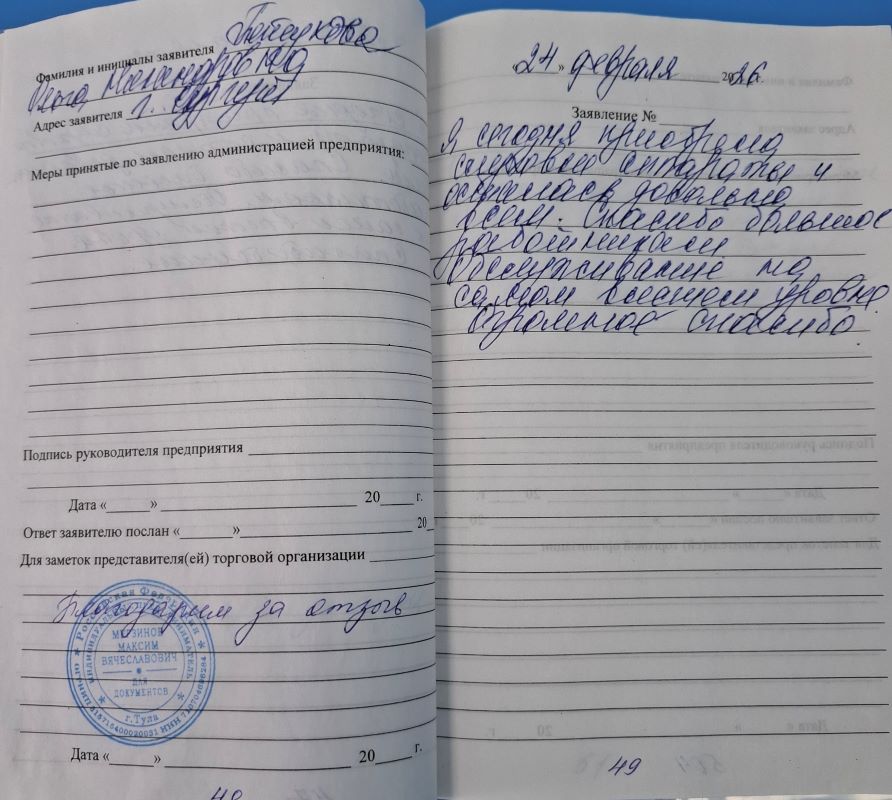 Фамилия и инициалы заявителя
Адрес заявителя г. Сургут
Меры принятые по заявлению администрацией предприятия:
Подпись руководителя предприятия
Дата «______» ______ 20____ г.
Ответ заявителю послан «______» ______ 20
Для заметок представителя(ей) торговой организации
Благодарим за отзыв
Российская Федерация
ИНДИВИДУАЛЬНЫЙ ПРЕДПРИНИМАТЕЛЬ
МАКСИМ
ВЯЧЕСЛАВОВИЧ
ДЛЯ
ДОКУМЕНТОВ
г.Тула
Дата «______» ______ 20____ г.
«24» февраля 2026г.
Заявление №
Я сегодня приобрела
слуховые аппараты и
осталась довольна
всем. Спасибо большое
работникам
Обслуживание на
самом высшем уровне
Огромное спасибо
49